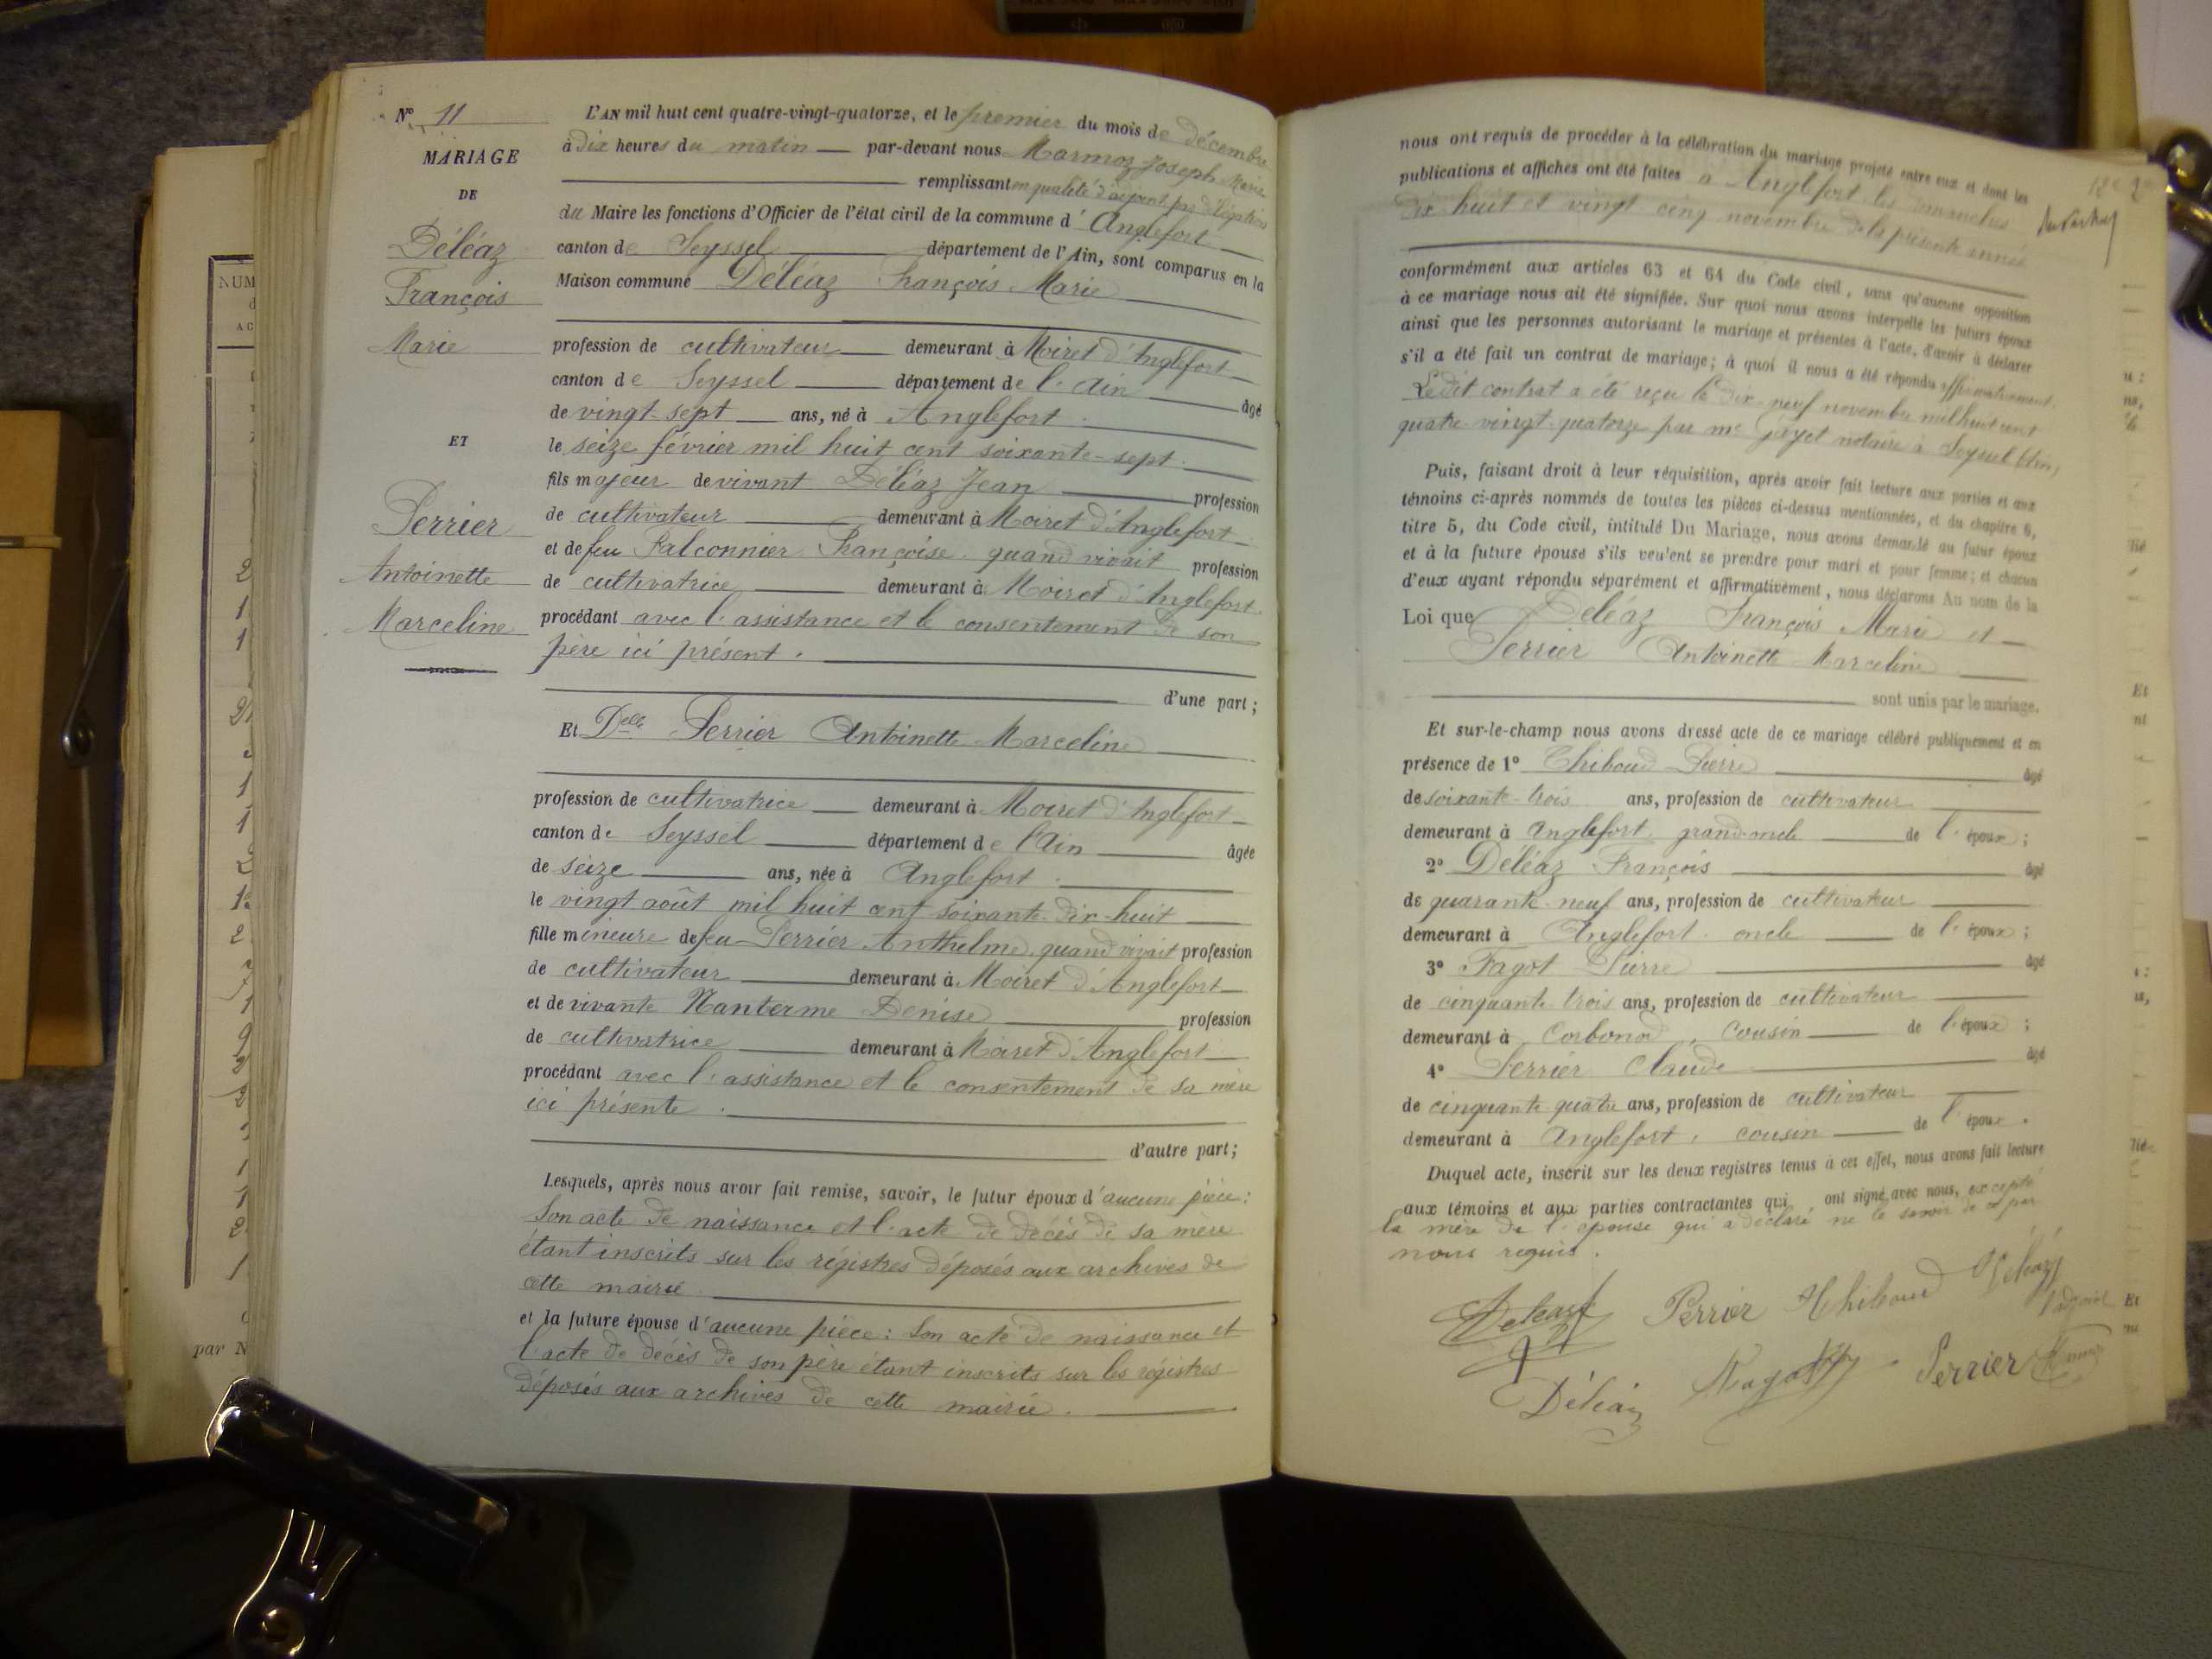 N° 11
MARIAGE
DE
Déléaz
François
Marie
ET
Perrier
Antoinette
Marceline
L'AN mil huit cent quatre-vingt-quatorze, et le premier du mois de décembre
à dix heures du matin par-devant nous Marmoz Joseph Marie
remplissant en qualité d'adjoint par délégation
du Maire les fonctions d'Officier de l'état civil de la commune d'Anglefort
canton de Seyssel département de l'Ain, sont comparus en la
Maison commune Déléaz François Marie
profession de cultivateur demeurant à Moiret d'Anglefort
canton de Seyssel département de l'Ain âgé
de vingt-sept ans, né à Anglefort
le seize février mil huit cent soixante-sept
fils majeur de vivant Déléaz Jean profession
de cultivateur demeurant à Moiret d'Anglefort
et de feu Falconnier Françoise quand vivait profession
de cultivatrice demeurant à Moiret d'Anglefort
procédant avec l'assistance et le consentement de son
père ici présent.
d'une part;
Et Delle Perrier Antoinette Marceline
profession de cultivatrice demeurant à Moiret d'Anglefort
canton de Seyssel département de l'Ain âgée
de seize ans, née à Anglefort
le vingt août mil huit cent soixante-dix-huit
fille mineure de feu Perrier Anthelme, quand vivait profession
de cultivateur demeurant à Moiret d'Anglefort
et de vivante Nanterme Denise profession
de cultivatrice demeurant à Moiret d'Anglefort
procédant avec l'assistance et le consentement de sa mère
ici présente.
d'autre part;
Lesquels, après nous avoir fait remise, savoir, le futur époux d'aucune pièce:
Son acte de naissance et l'acte de décès de sa mère
étant inscrits sur les régistres déposés aux archives de
cette mairie.
et la future épouse d'aucune pièce: Son acte de naissance et
l'acte de décès de son père étant inscrits sur les régistres
déposés aux archives de cette mairie.
nous ont requis de procéder à la célébration du mariage projeté entre eux et dont les
publications et affiches ont été faites à Anglefort les dimanches
dix-huit et vingt-cinq novembre de la présente année
conformément aux articles 63 et 64 du Code civil, sans qu'aucune opposition
à ce mariage nous ait été signifiée. Sur quoi nous avons interpellé les futurs époux
ainsi que les personnes autorisant le mariage et présentes à l'acte, d'avoir à déclarer
s'il a été fait un contrat de mariage; à quoi il nous a été répondu affirmativement.
Ledit contrat a été reçu le dix-neuf novembre mil huit cent
quatre-vingt-quatorze par me Gayet notaire à Seyssel
Puis, faisant droit à leur réquisition, après avoir fait lecture aux parties et aux
témoins ci-après nommés de toutes les pièces ci-dessus mentionnées, et du chapitre 6,
titre 5, du Code civil, intitulé Du Mariage, nous avons demandé au futur époux
et à la future épouse s'ils veulent se prendre pour mari et pour femme; et chacun
d'eux ayant répondu séparément et affirmativement, nous déclarons Au nom de la
Loi que Déléaz François Marie et
Perrier Antoinette Marceline
sont unis par le mariage.
Et sur-le-champ nous avons dressé acte de ce mariage célébré publiquement et en
présence de 1° Thiboud Pierre âgé
de soixante-trois ans, profession de cultivateur
demeurant à Anglefort grand-oncle de l'époux;
2° Déléaz François âgé
de quarante-neuf ans, profession de cultivateur
demeurant à Anglefort oncle de l'époux;
3° Fagot Pierre âgé
de cinquante-trois ans, profession de cultivateur
demeurant à Corbonod, cousin de l'époux;
4° Perrier Claude âgé
de cinquante quatre ans, profession de cultivateur
demeurant à Anglefort, cousin de l'époux.
Duquel acte, inscrit sur les deux registres tenus à cet effet, nous avons fait lecture
aux témoins et aux parties contractantes qui ont signé avec nous, excepté
la mère de l'épouse qui a déclaré ne le savoir de ce par
nous requis.
Perrier Thiboud Déléaz
Déléaz Perrier
NUM
AC
par N